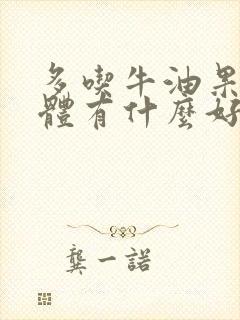 多喫牛油果
體有什麼好
龔一諾